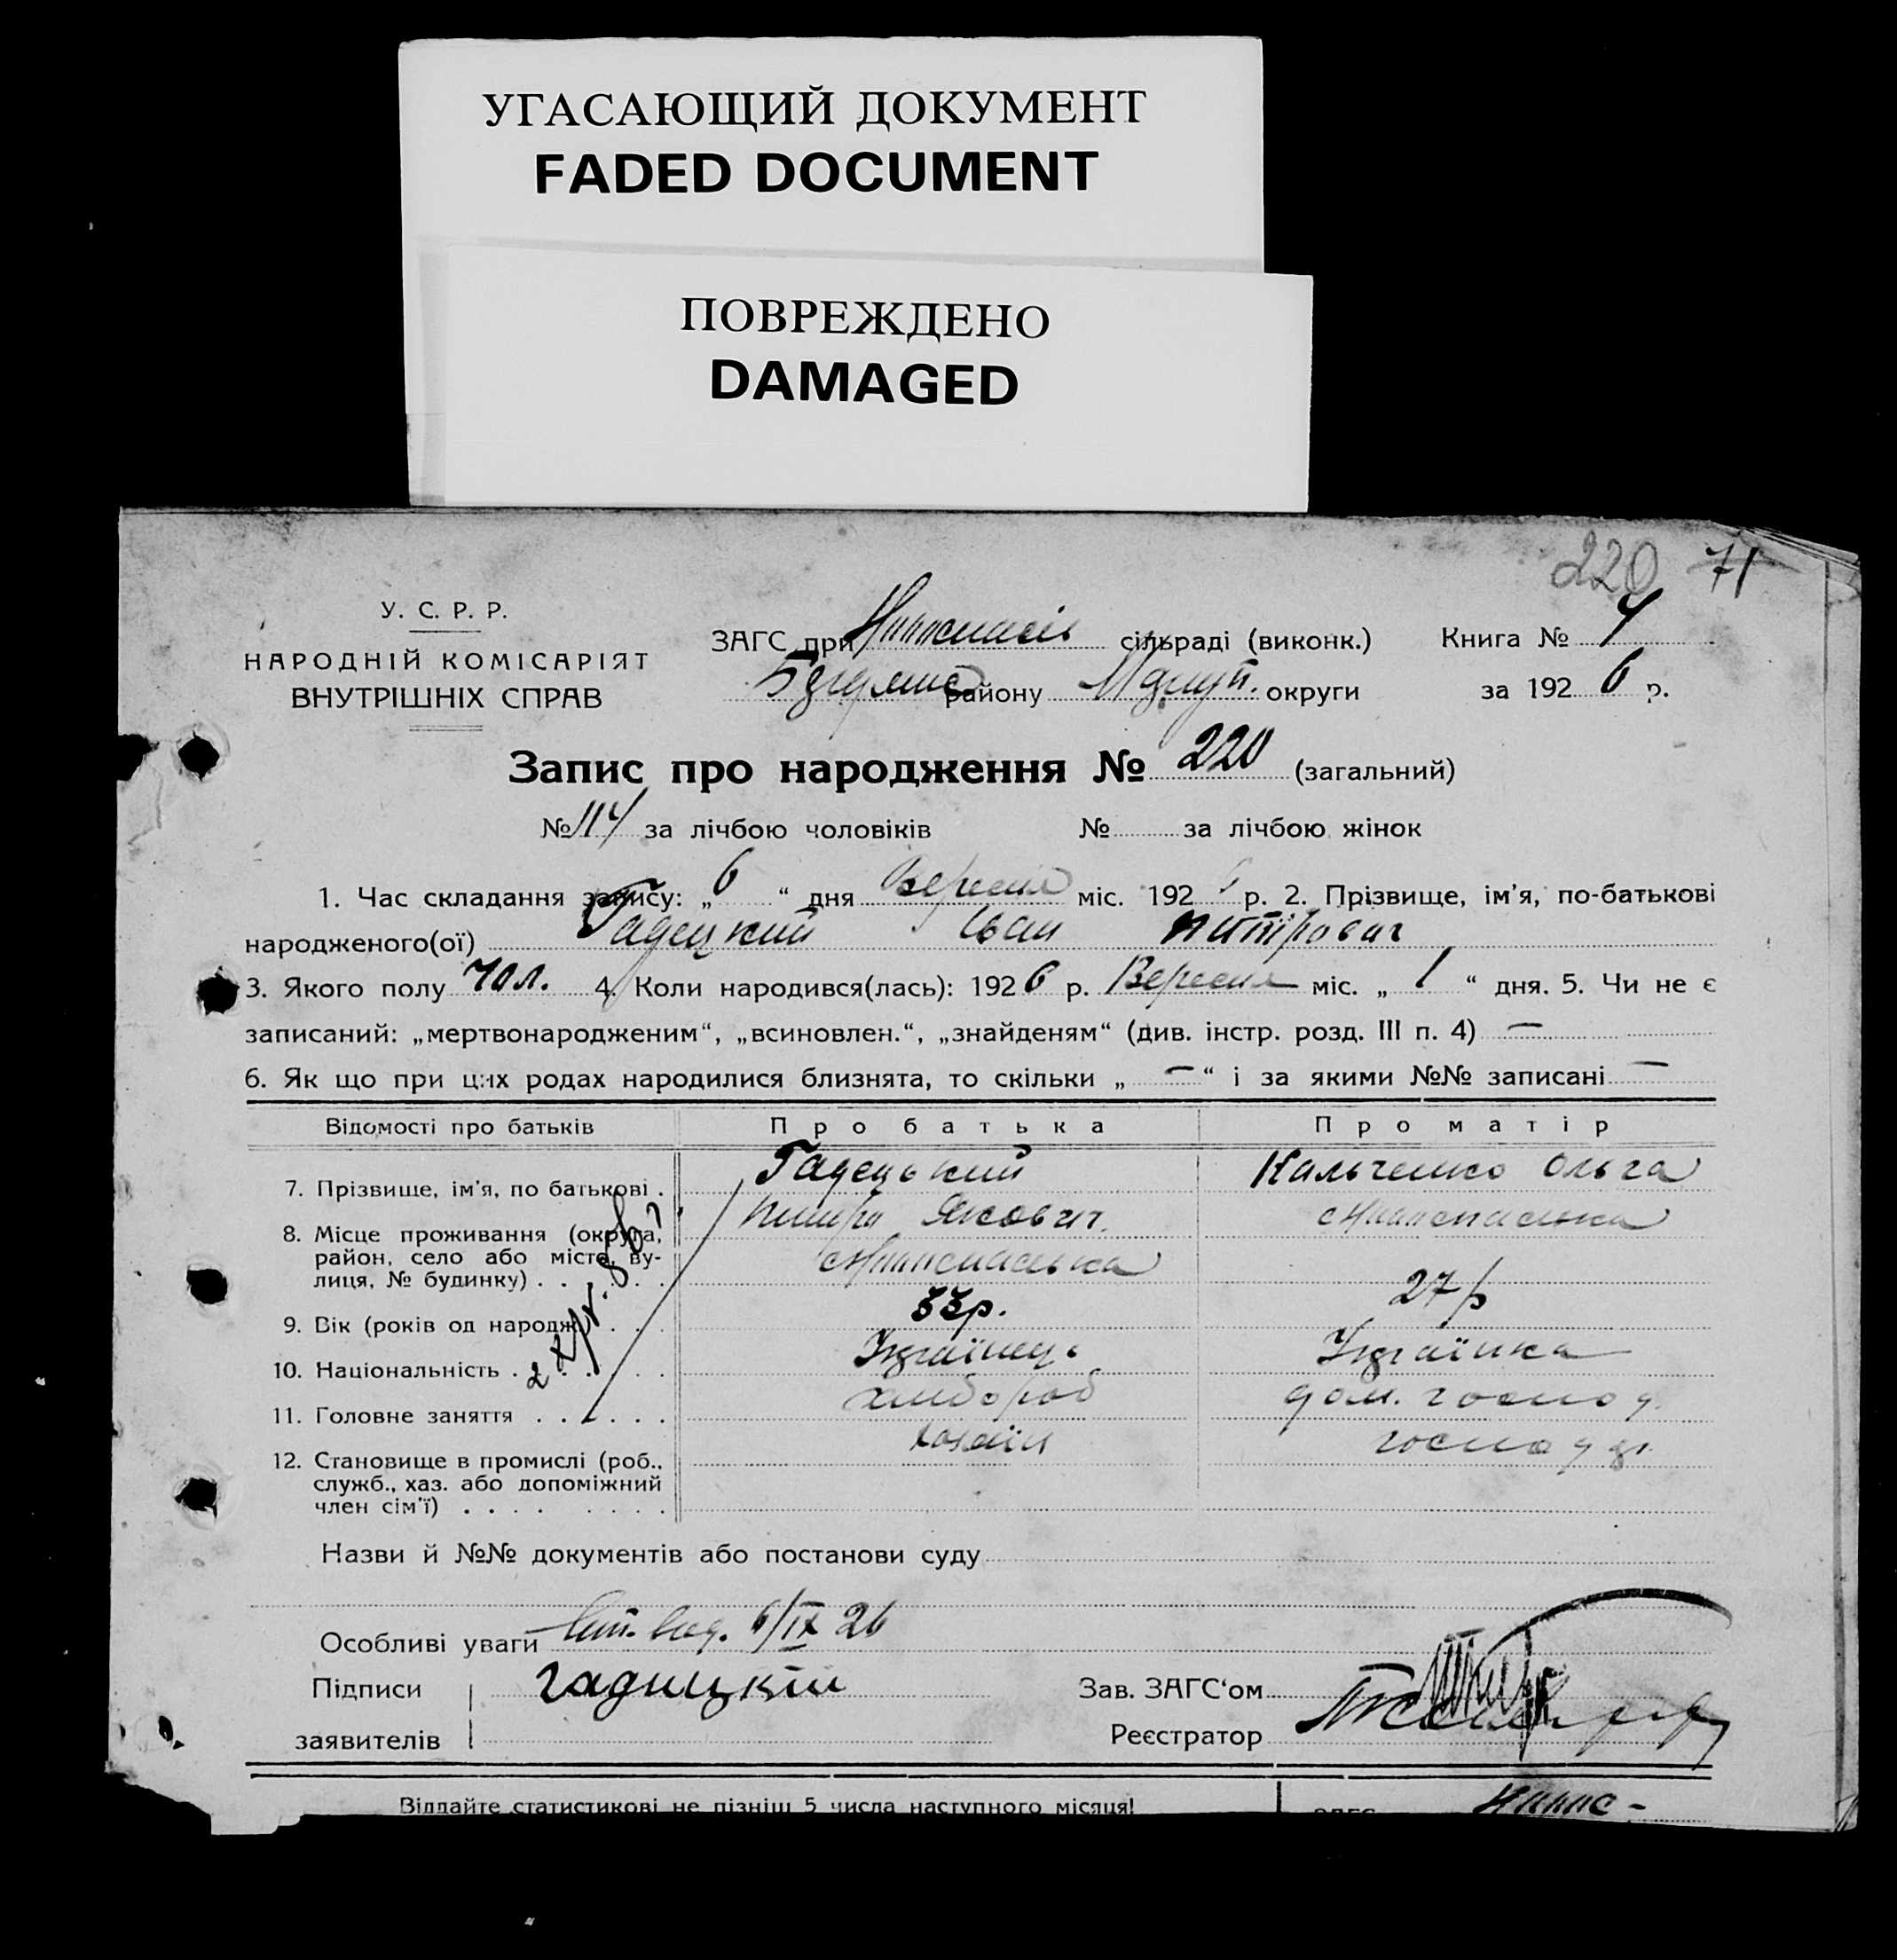 УГАСАЮЩИЙ ДОКУМЕНТ
FADED DOCUMENT
ПОВРЕЖДЕНО
DAMAGED
220 71
У. С. Р. Р.
НАРОДНІЙ КОМІСАРІЯТ
ВНУТРІШНІХ СПРАВ
ЗАГС при сільраді (виконк.) Книга № 4
району округи за 192 6 р.
Запис про народження № 220 (загальний)
№ 114 за лічбою чоловіків № за лічбою жінок
1. Час складання запису: „ 6 “ дня Вересня міс. 192 р. 2. Прізвище, ім'я, по-батькові
народженого(ої) Гадецкий Іван
3. Якого полу чол. 4. Коли народився(лась): 192 6 р. Вересня міс. „ 1 “ дня. 5. Чи не є
записаний: „мертвонародженим“, „всиновлен.“, „знайденям“ (див. інстр. розд. III п. 4) —
6. Як що при цих родах народилися близнята, то скільки „ — “ і за якими №№ записані —
Відомості про батьків Про батька Про матір
7. Прізвище, ім'я, по батькові . Гадецький Кальченко Ольга
Якович
8. Місце проживання (округа,
район, село або місто, ву-
лиця, № будинку) . . . . . .
9. Вік (років од народж.) . . . 33р. 27 р
10. Національність . . . . . . Українець Українка
11. Головне заняття . . . . . . хлибороб дом. господ.
12. Становище в промислі (роб.,
служб., хаз. або допоміжний
член сім'ї) . . . . . . . . хазаїн
Назви й №№ документів або постанови суду
Особливі уваги 6/IX 26
Підписи гадицкій Зав. ЗАГС‘ом
заявителів Реєстратор
Віддайте статистикові не пізніш 5 числа наступного місяця! ЗАГС